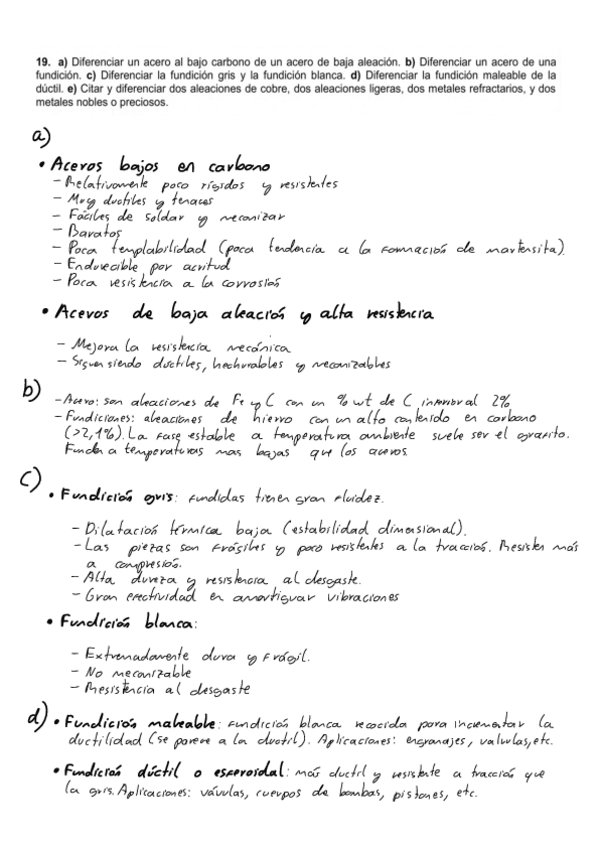 19. a) Diferenciar un acero al bajo carbono de un acero de baja aleación. b) Diferenciar un acero de una
fundición. c) Diferenciar la fundición gris y la fundición blanca. d) Diferenciar la fundición maleable de la
dúctil. e) Citar y diferenciar dos aleaciones de cobre, dos aleaciones ligeras, dos metales refractarios, y dos
metales nobles o preciosos.
a)
• Aceros bajos en carbono
- Relativamente poco rígidos y resistentes
- Muy ductiles y tenaces
- Fáciles de soldar y mecanizar
- Baratos
- Poca templabilidad (poca tendencia a la formación de martensita).
- Endurecible por acritud
- Poca resistencia a la corrosión
• Aceros de baja aleación y alta resistencia
- Mejora la resistencia mecánica
- Siguen siendo ductiles, hechurables y mecanizables
b)
- Acero: son aleaciones de Fe y C con un % wt de C inferior al 2%
- Fundiciones: aleaciones de hierro con un alto contenido en carbono
(>2,1%). La fase estable a temperatura ambiente suele ser el grafito.
Funden a temperaturas mas bajas que los aceros
c)
• Fundición gris: fundidas tienen gran fluidez.
- Dilatación térmica baja (estabilidad dimensional).
- Las piezas son frágiles y poco resistentes a la tracción. Resisten más
a compresión.
- Alta dureza y resistencia al desgaste.
- Gran efectividad en amortiguar vibraciones
• Fundición blanca:
- Extremadamente dura y frágil.
- No mecanizable
- Resistencia al desgaste
d) • Fundición maleable: fundición blanca recocida para incrementar la
ductilidad (se parece a la ductil). Aplicaciones: engranajes, valvulas, etc.
• Fundición dúctil o esferoidal: más ductil y resistente a tracción que
la gris. Aplicaciones: vávulas, cuerpos de bombas, pistones, etc.